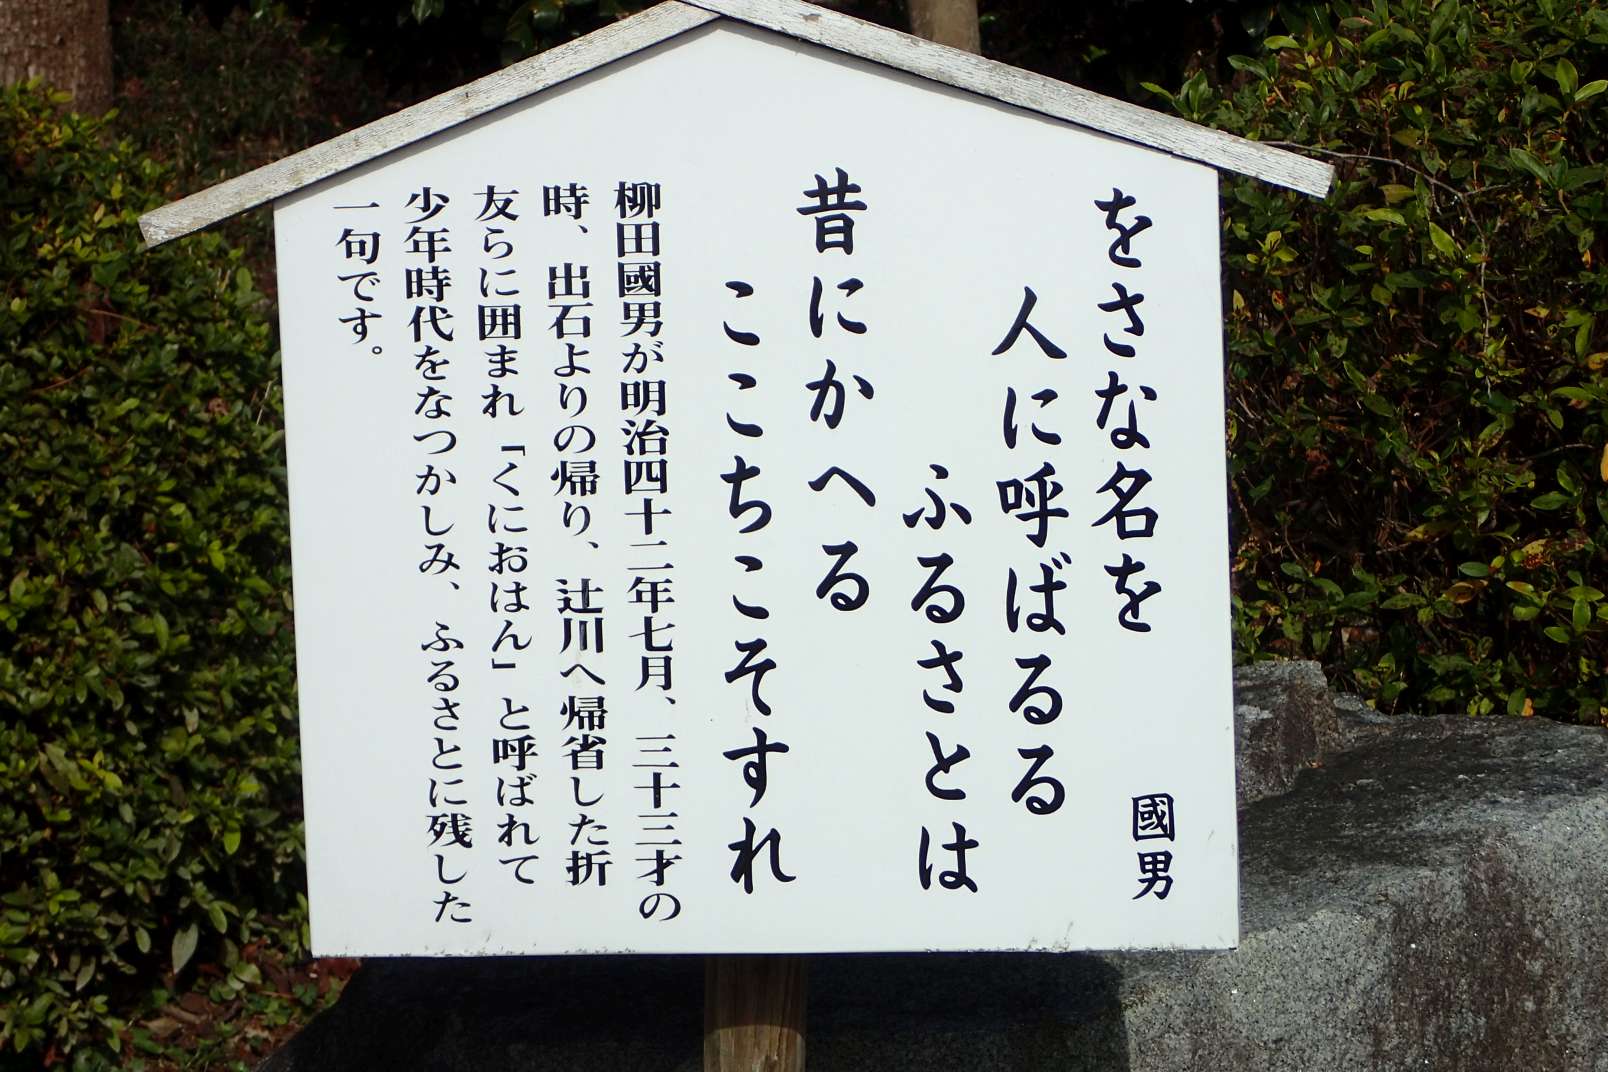 をさな名を
國男
人に呼ばるる
ふるさとは
昔にかへる
ここちこそすれ
柳田國男が明治四十二年七月、三十三才の
時、出石よりの帰り、辻川へ帰省した折
友らに囲まれ「くにおはん」と呼ばれて
少年時代をなつかしみ、ふるさとに残した
一句です。